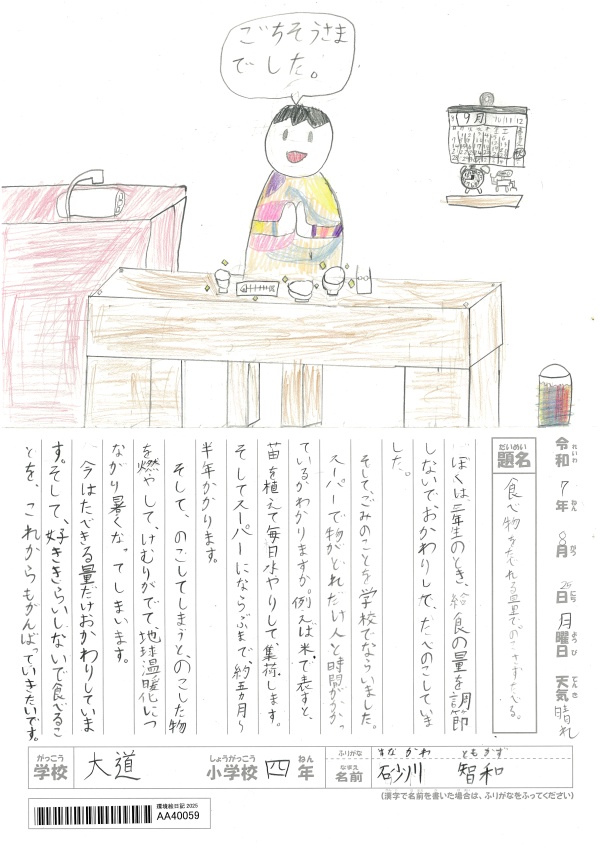 ごちそうさま
でした。
9月
10 11 12
令和 7年 8月 25日 月曜日 天気 晴れ
れいわ ねん がつ にち ようび てんき
だいめい
題名
食べ物をたべれる量で。のこさずたべる。
ぼくは三年生のとき、給食の量を調節
しないでおかわりして、たべのこしていま
した。
そしてごみのことを学校でならいました。
スーパーで物がどれだけ人と時間がかかっ
ているかわかりますか。例えば米で表すと、
苗を植えて毎日水やりして、集荷します。
そしてスーパーにならぶまで、約五ヵ月~
半年かかります。
そして、のこしてしまうと、のこした物
を燃やして、けむりがでて、地球温暖化につ
ながり暑くなってしまいます。
今はたべきる量だけおかわりしていま
す。そして、好ききらいしないで食べるこ
とを、これからもがんばっていきたいです。
がっこう しょうがっこう ねん
学校 大道 小学校 四年
ふりがな すながわ ともかず
なまえ
名前 砂川 智和
(漢字で名前を書いた場合は、ふりがなをふってください)
環境絵日記 2025
AA40059